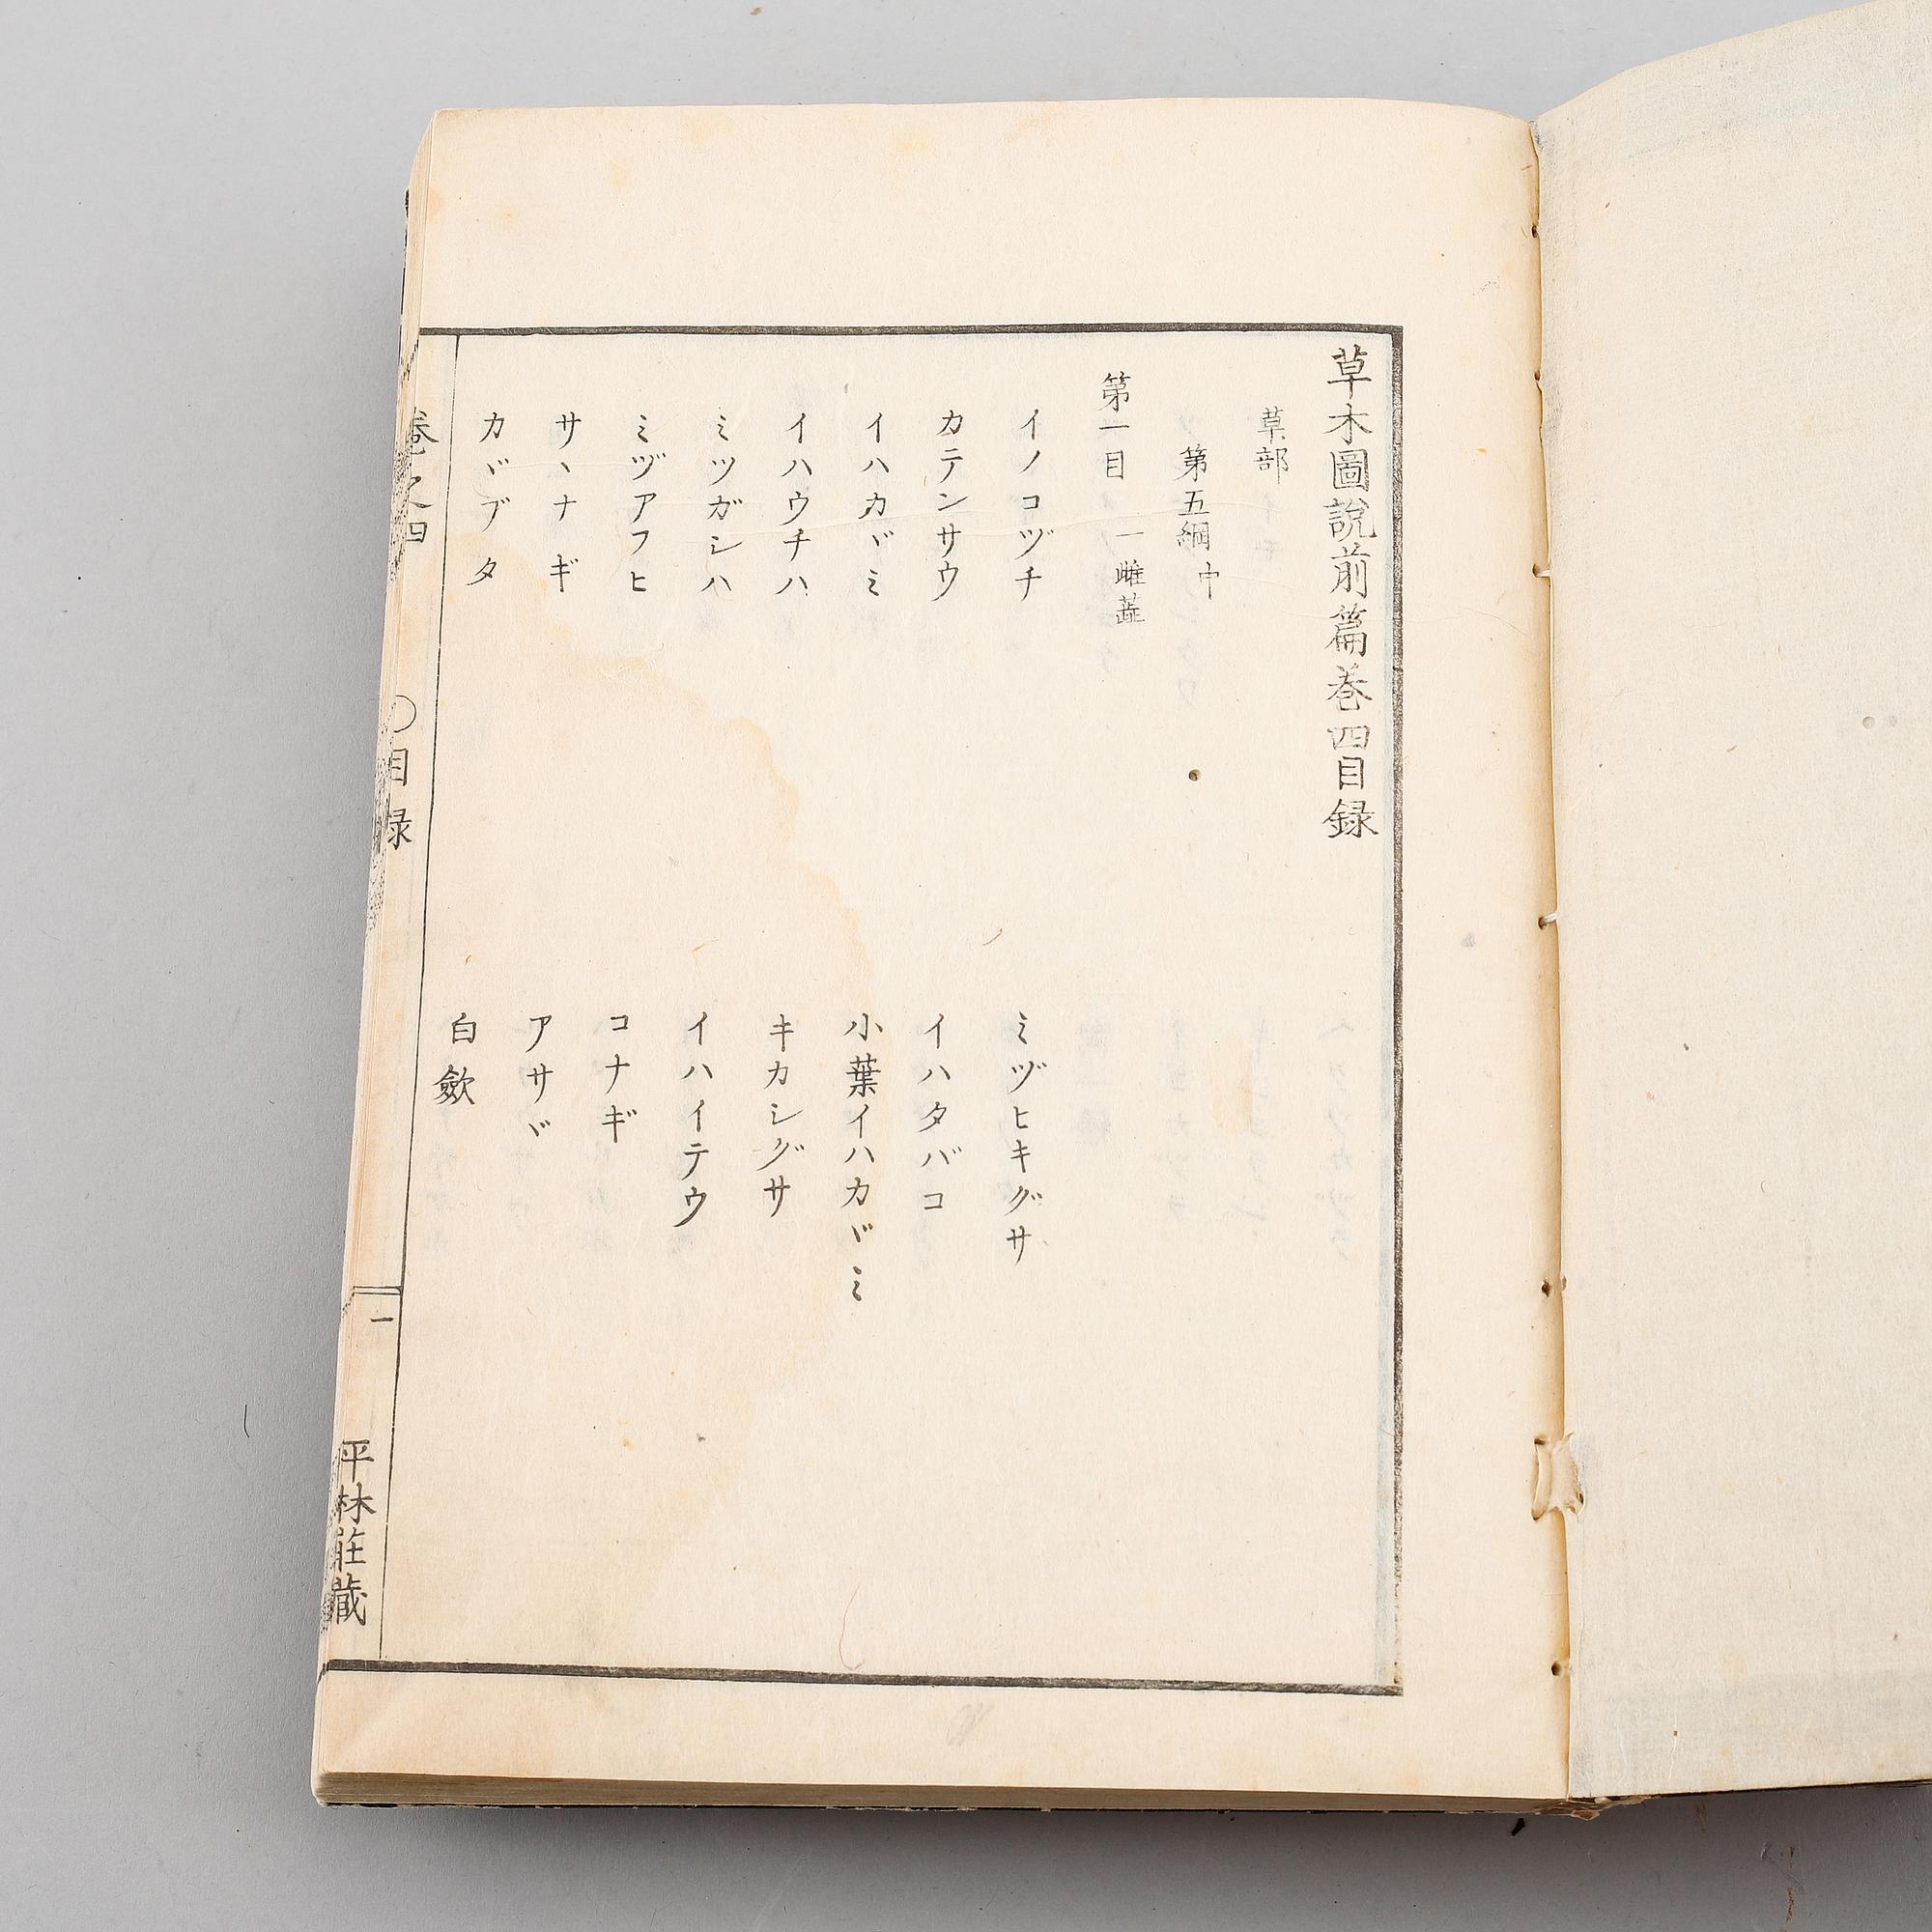 草木圖說前篇巻四目録
草部
第五綱 中
第一目 一雌蘂
イノコヅチ ミヅヒキグサ
カテンサウ イハタバコ
イハカヾミ 小葉イハカヾミ
イハウチハ キカシグサ
ミツガシハ イハイテウ
ミヅアフヒ コナギ
サヽナギ アサヾ
カヾブタ 白歛
巻之四 〇目録 一 平林莊藏